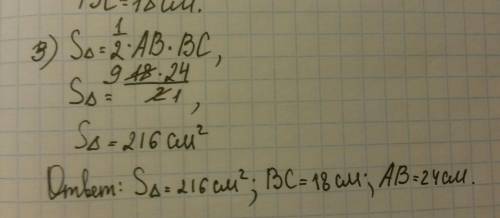 BC=18 см.
3) S△=1/2·AB·BC,
S△=9 18·24/2 1,
S△=216 см²
Ответ: S△=216 см²; BC=18 см; AB=24 см.